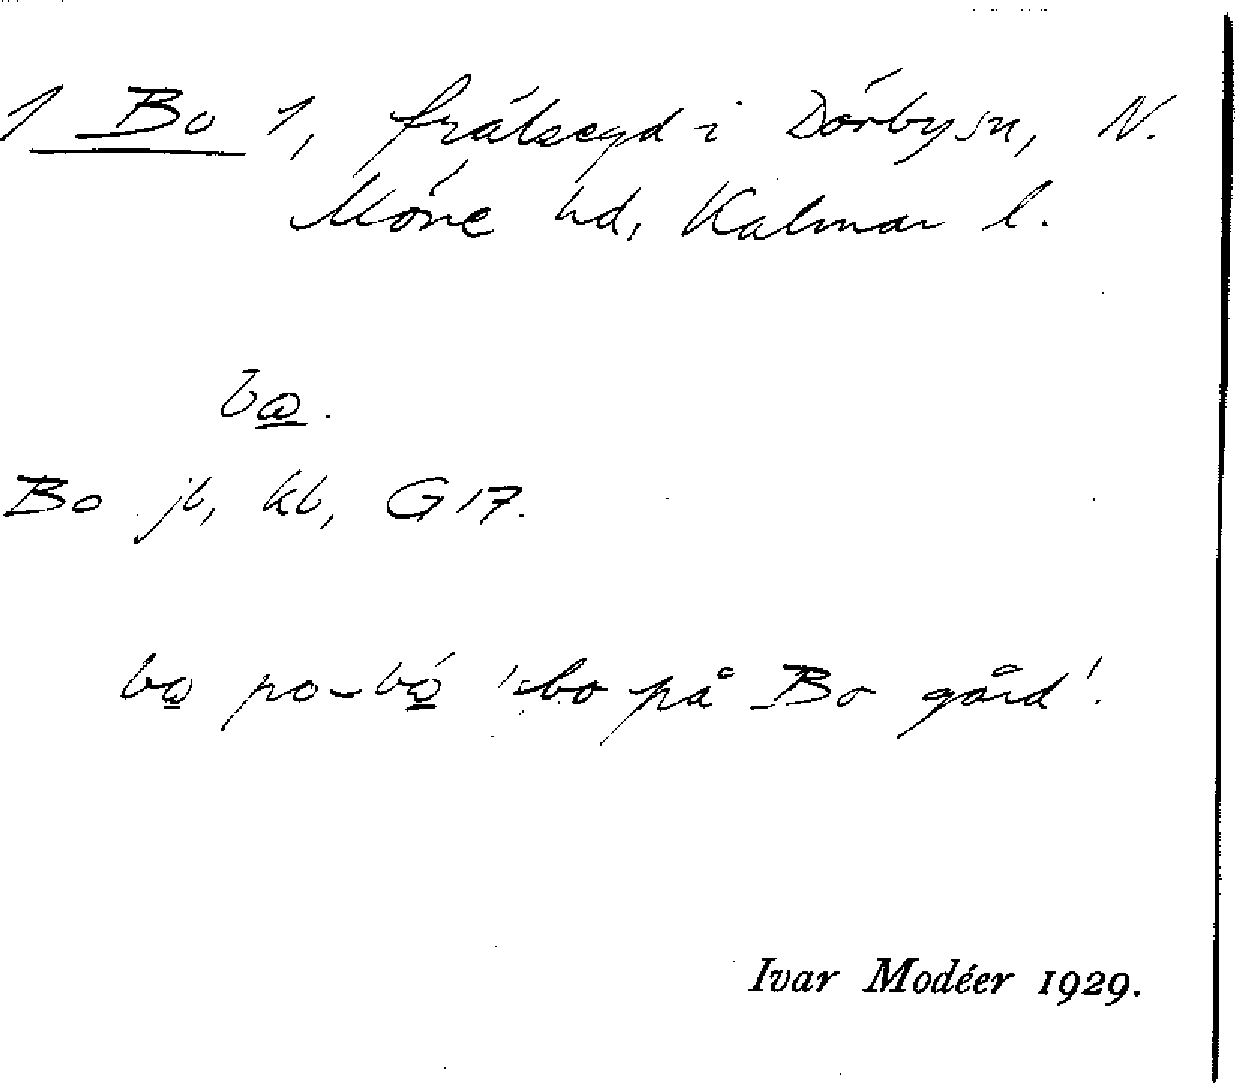 1 Bo 1, frälsegd i Dörby sn, N.
Möre hd, Kalmar l.
bω.
Bo jb, kb, G 17.
bω po-bώ 'bo på Bo gård'.
Ivar Modéer 1929.